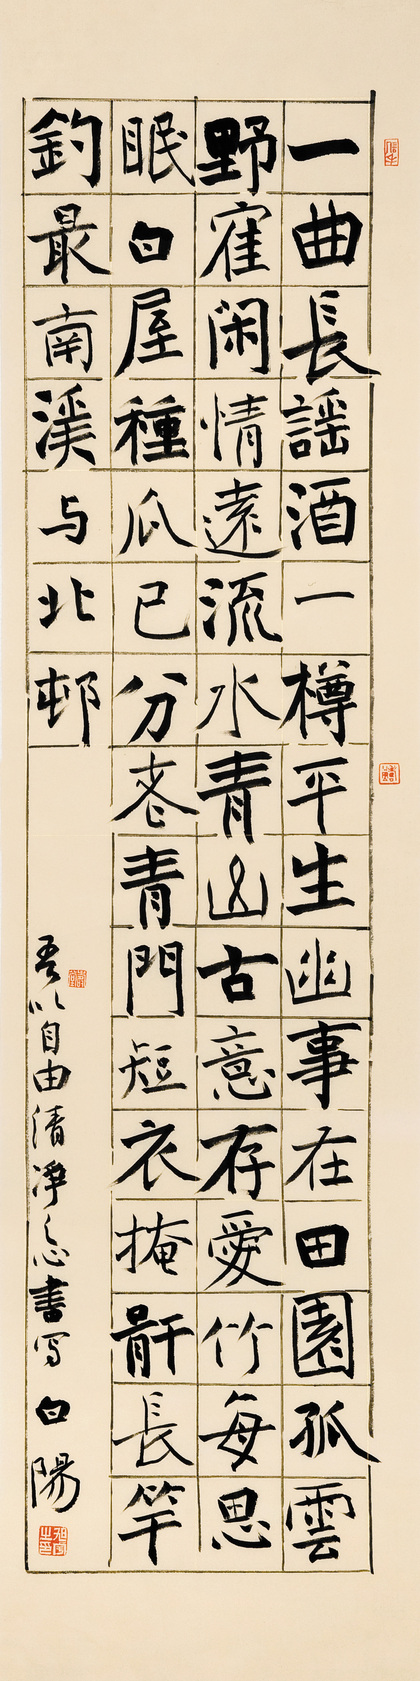 一曲長謡酒一樽平生幽事在田園孤雲
野寉閑情遠流水青山古意存愛竹每思
眠白屋種瓜已分老青門短衣掩骭長竿
釣最南溪与北邨
吾以自由清净之心書写 白陽